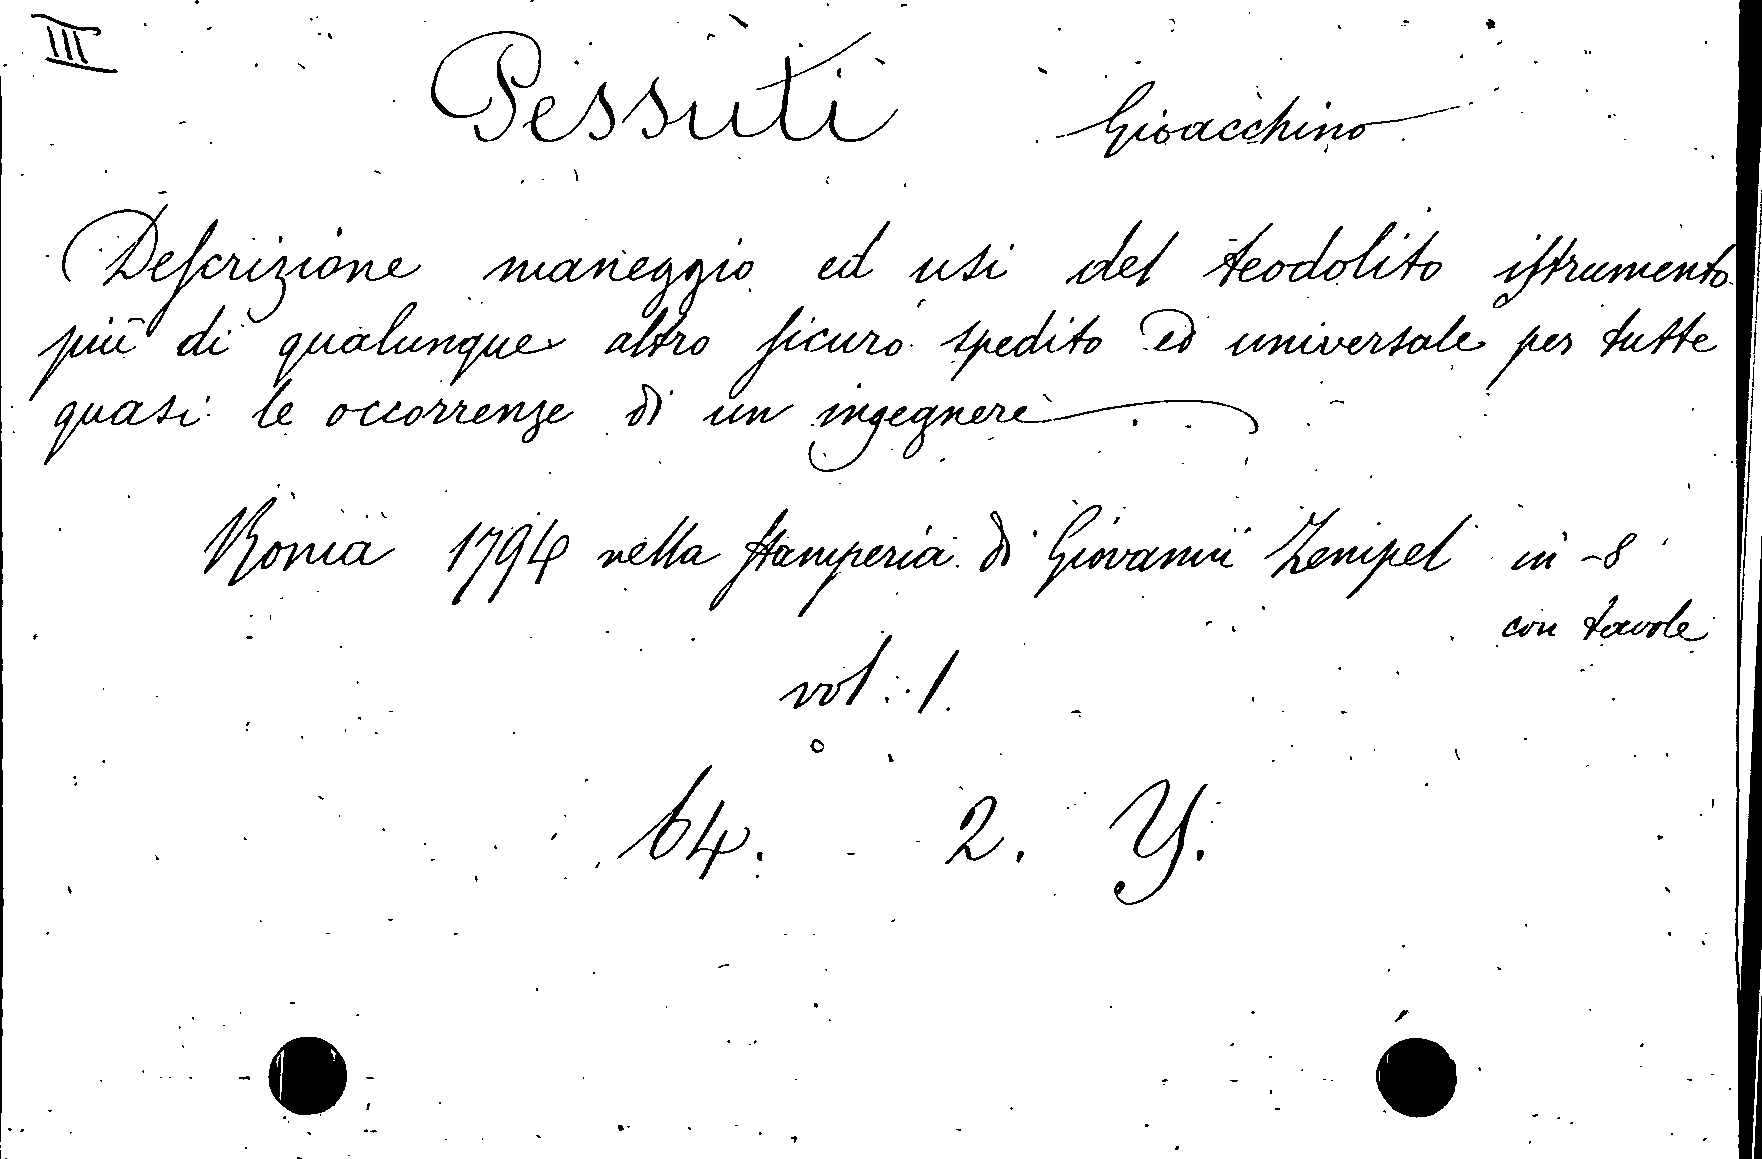 III
Pessuti Gioacchino
Descrizione maneggio ed usi del teodolito istrumento
più di qualunque altro sicuro spedito ed universale per tutte
quasi le occorrenze di un ingegnere
Roma 1794 nella stamperia di Giovanni Zempel in-8
con tavole
vol. 1.
64. 2. Y.